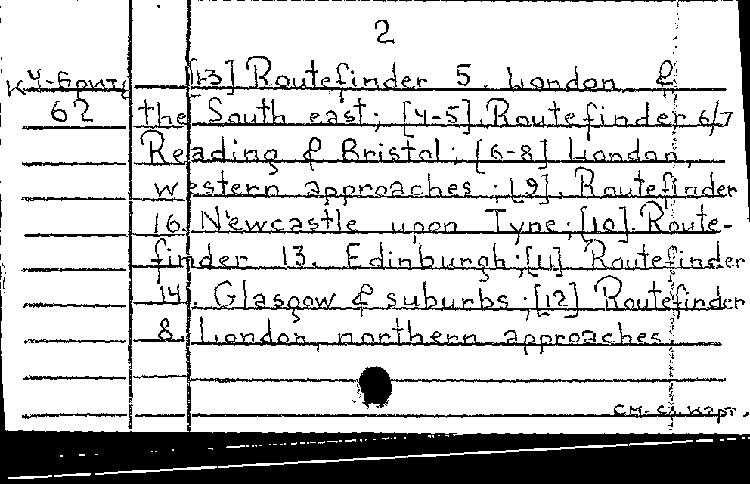 2
К4-Брит. [13] Routefinder 5. London &
62 the South east; [4-5]. Routefinder 6/7
Reading & Bristol; [6-8] London,
western approaches; [9]. Routefinder
16. Newcastle upon Tyne; [10]. Route-
finder 13. Edinburgh; [11] Routefinder
14. Glasgow & suburbs; [12] Routefinder
8. London, northern approaches.
см. сл. карт.